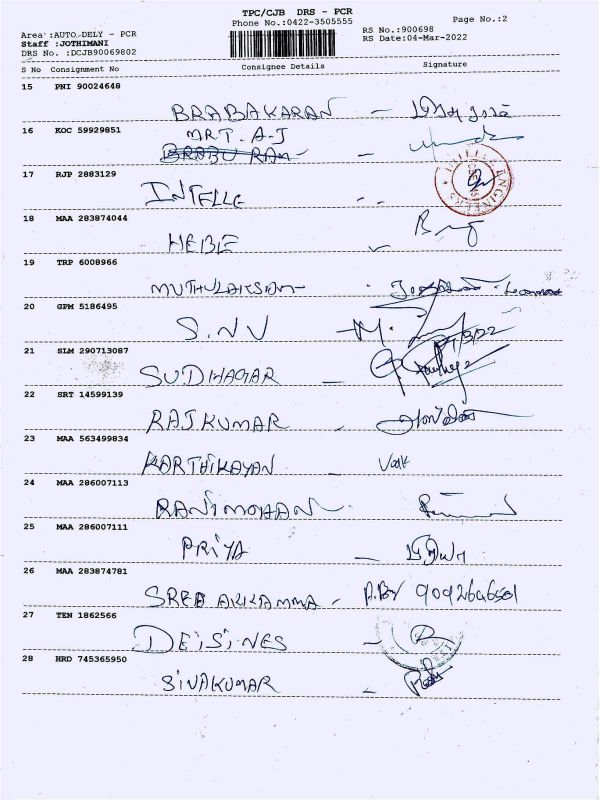 TPC/CJB DRS - PCR
Phone No.:0422-3505555
Page No.:2
Area :AUTO.DELY - PCR
Staff :JOTHIMANI
DRS No. :DCJB90069802
RS No.:900698
RS Date:04-Mar-2022
S No Consignment No Consignee Details Signature
15 PNI 90024648
BRABAKARAN -
16 KOC 59929851
MR T. A-J
BRABU RAM -
17 RJP 2883129
INTELLE - -
INTELLE ENGINEERS
18 MAA 283874044
HEBLE
19 TRP 6008966
MUTHULAKSAM-
20 GPM 5186495
S.NV - M.
21 SLM 290713087
SUDHAGAR -
22 SRT 14599139
RAJKUMAR -
23 MAA 563499834
KARTHIKAYAN -
24 MAA 286007113
RANIMOHAN -
25 MAA 286007111
PRIYA - பிரியா
26 MAA 283874781
SREE AKKAMMA -
27 TEN 1862566
DEiSiNES -
28 HRD 745365950
SIVAKUMAR -